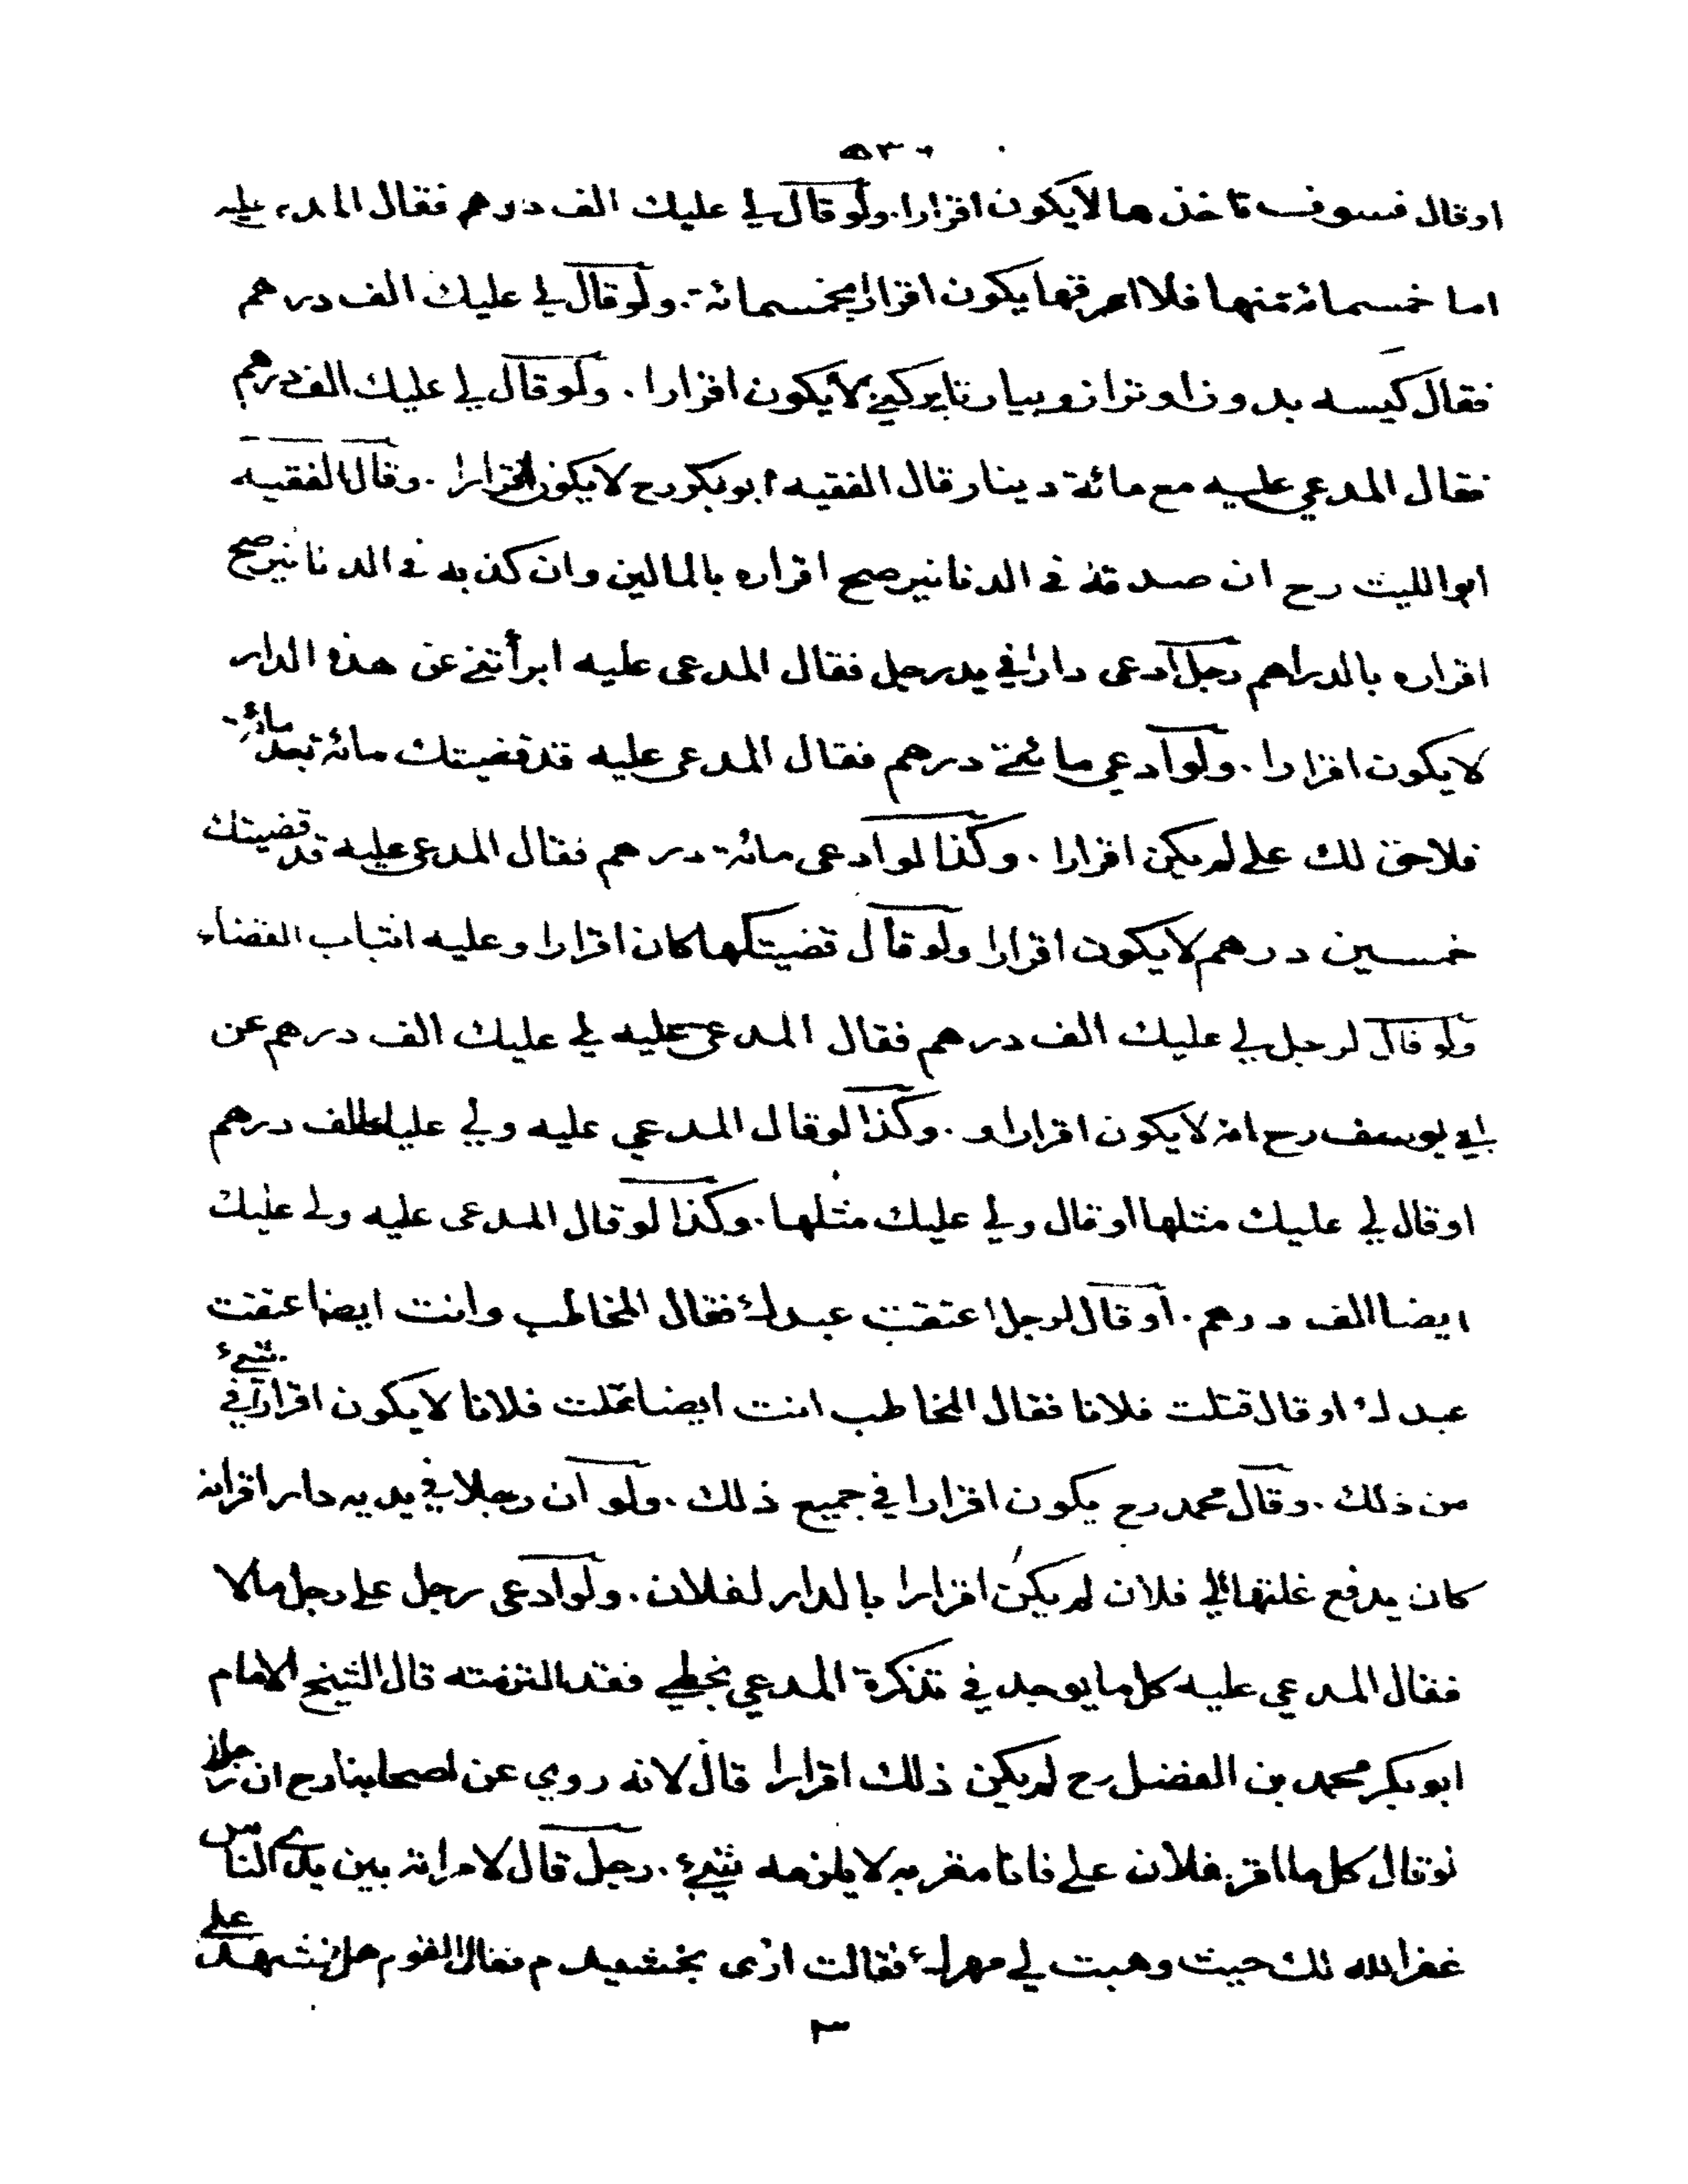 او قال فسوف تاخذها لا يكون اقرارا. ولو قال لي عليك الف درهم فقال المدعى عليه
اما خمسمائة منها فلا اعرفها يكون اقرارا بخمسمائة. ولو قال لي عليك الف درهم
فقال كيسه بدوز او ترازو بيار لا يكون اقرارا. ولو قال لي عليك الف درهم
فقال المدعي عليه مع مائة دينار قال الفقيه ابو بكر رح لا يكون اقرارا. وقال الفقيه
ابو الليث رح ان صدقه في الدنانير صح اقراره بالمالين وان كذبه في الدنانير صح
اقراره بالدراهم رجل ادعى دارا في يد رجل فقال المدعى عليه ابرأتني عن هذه الدار
لا يكون اقرارا. ولو ادعي مائتي درهم فقال المدعى عليه قد قضيتك مائة بعد مائة
فلا حق لك علي لم يكن اقرارا. وكذا لو ادعى مائة درهم فقال المدعي عليه قد قضيتك
خمسين درهم لا يكون اقرارا ولو قال قضيتكها كان اقرارا وعليه اثبات القضاء
ولو قال لرجل لي عليك الف درهم فقال المدعى عليه لي عليك الف درهم عن
ابي يوسف رح انه لا يكون اقرارا. وكذا لو قال المدعي عليه ولي عليك الف درهم
او قال لي عليك مثلها او قال ولي عليك مثلها. وكذا لو قال المدعى عليه ولي عليك
ايضا الف درهم. او قال لرجل اعتقت عبدك فقال المخاطب وانت ايضا اعتقت
عبدك او قال قتلت فلانا فقال المخاطب انت ايضا قتلت فلانا لا يكون اقرارا في شيء
من ذلك. وقال محمد رح يكون اقرارا في جميع ذلك. ولو ان رجلا في يديه دار اقر انه
كان يدفع غلتها الي فلان لم يكن اقرارا بالدار لفلان. ولو ادعى رجل على رجل مالا
فقال المدعي عليه كل ما يوجد في تذكرة المدعي بخطي فقد التزمته قال الشيخ الامام
ابو بكر محمد بن الفضل رح لم يكن ذلك اقرارا قال لانه روي عن اصحابنا رح ان رجلا
لو قال كل ما اقر فلان علي فانا مقر به لا يلزمه شيء. رجل قال لامراته بين يدي الناس
غفر الله لك حيث وهبت لي مهرك فقالت اري بخشيدم فقال القوم هل نشهد علي